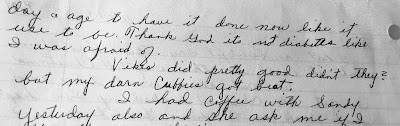 day & age to have it done now like it
use to be. Thank God its not diabettes like
I was afraid of.
Vikes did pretty good didn't they?
but my darn Cubbies got beat.
I had coffee with Sandy
Yesterday also and she ask me if I